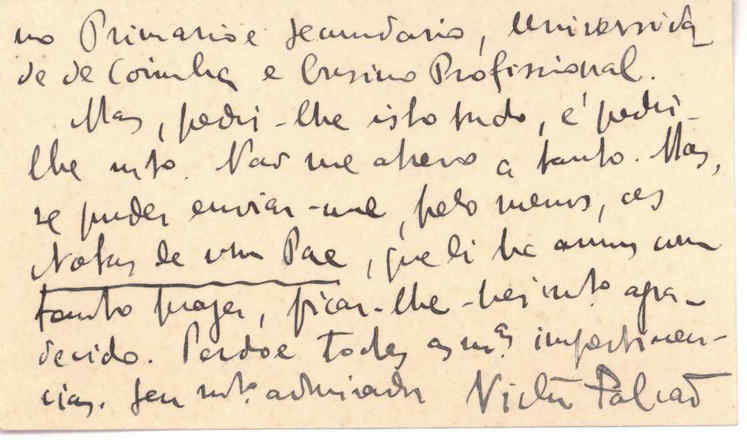 no Primario e Secundario, Universida
de de Coimbra e Ensino Profissional.
Mas, pedir-lhe isto tudo, é pedir-
lhe mto. Não me atrevo a tanto. Mas,
se puder enviar-me, pelo menos, as
Notas de um Pae, que li ha annos com
tanto prazer, ficar-lhe-hei mto. agra-
decido. Perdoe todas as mas. impertinen-
cias. Seu mto. admirador Victor Falcão